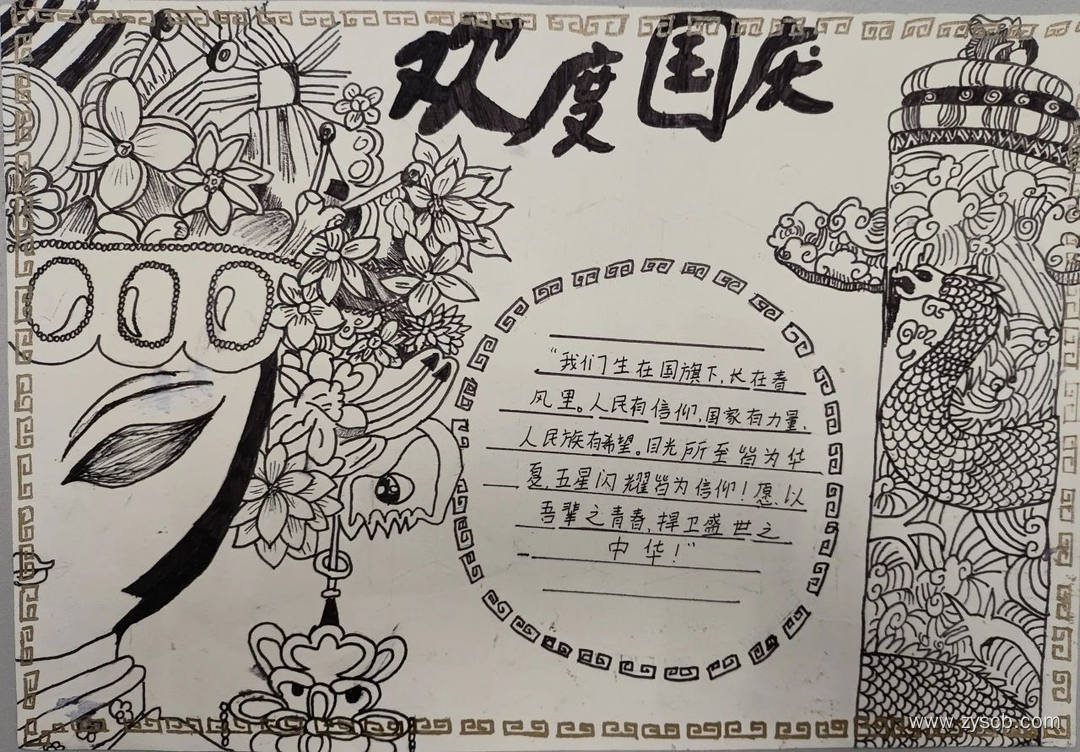 欢度国庆
“我们生在国旗下,长在春
风里。人民有信仰,国家有力量,
人民族有希望。目光所至皆为华
夏,五星闪耀皆为信仰!愿以
吾辈之青春,捍卫盛世之
中华!”
www.zyscb.com